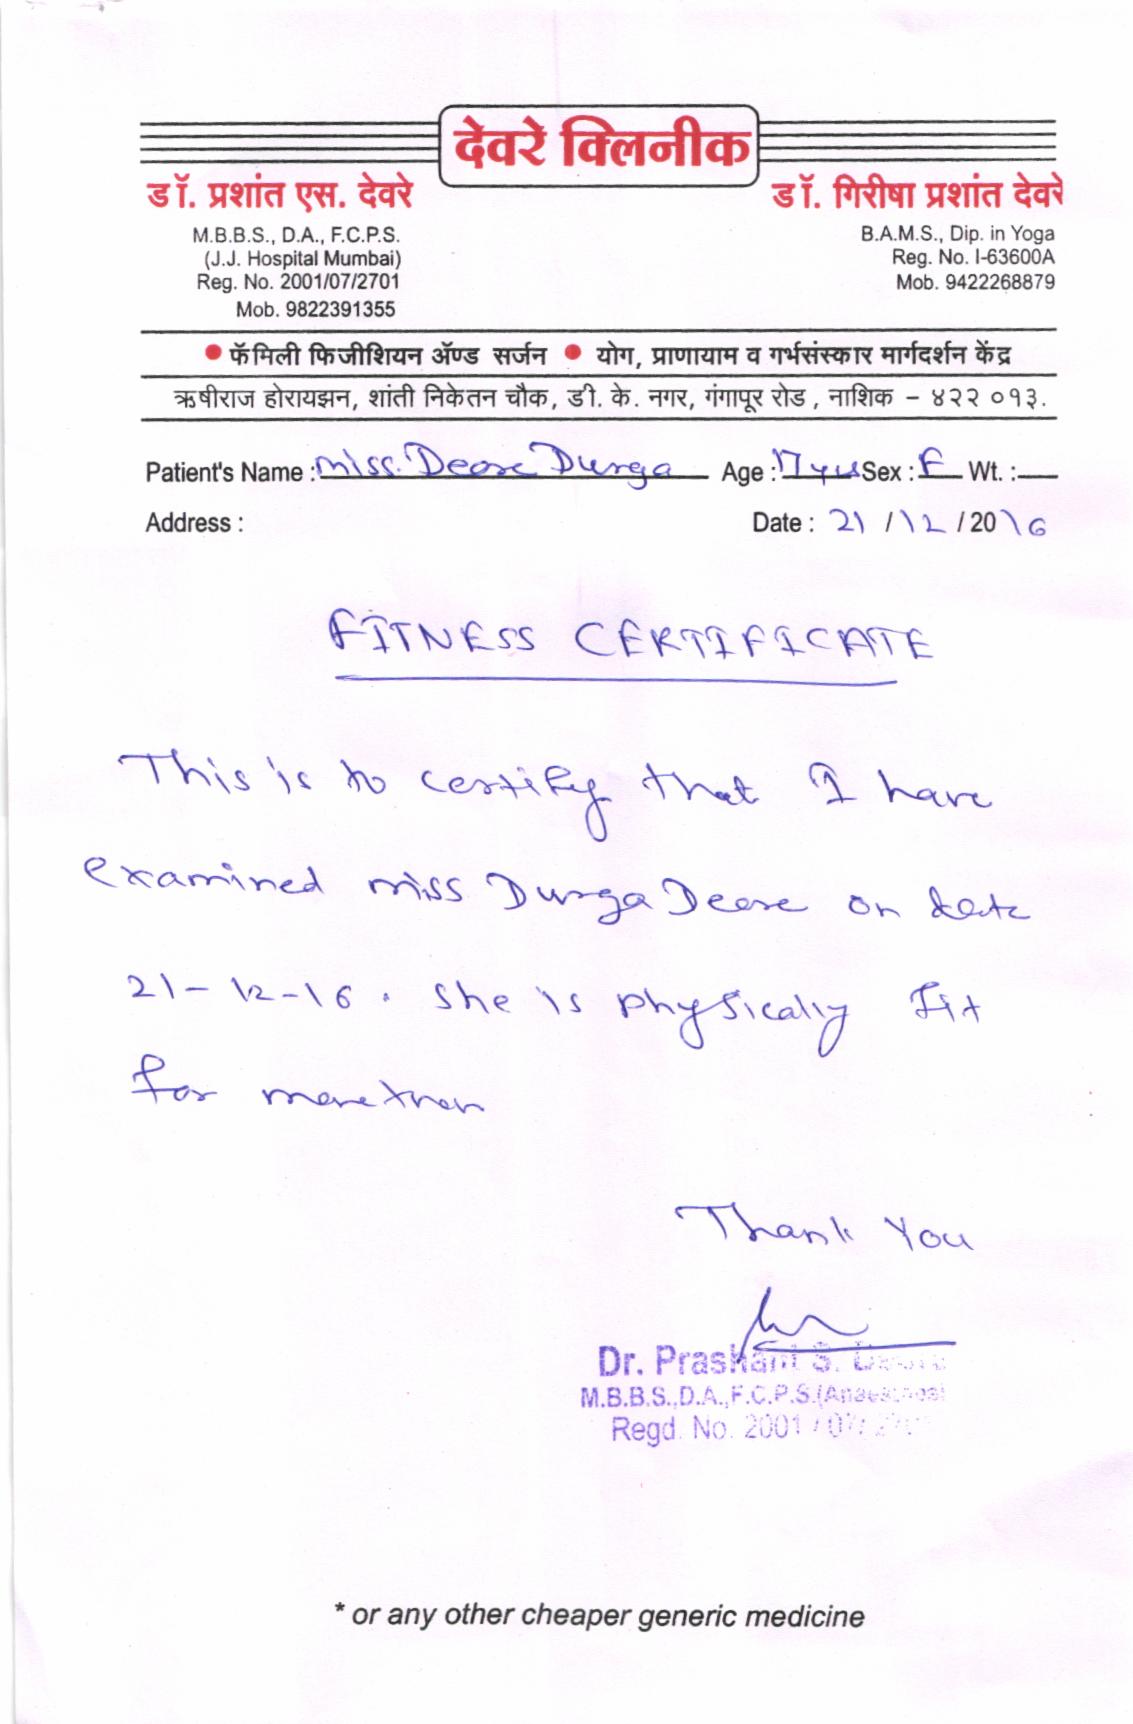 देवरे क्लिनीक
डॉ. प्रशांत एस. देवरे
M.B.B.S., D.A., F.C.P.S.
(J.J. Hospital Mumbai)
Reg. No. 2001/07/2701
Mob. 9822391355
डॉ. गिरीषा प्रशांत देवरे
B.A.M.S., Dip. in Yoga
Reg. No. I-63600A
Mob. 9422268879
• फॅमिली फिजीशियन ॲण्ड सर्जन • योग, प्राणायाम व गर्भसंस्कार मार्गदर्शन केंद्र
ऋषीराज होरायझन, शांती निकेतन चौक, डी. के. नगर, गंगापूर रोड, नाशिक - ४२२ ०१३.
Patient's Name : Miss. Deore Durga Age : 17 yrs Sex : F Wt. :
Address : Date : 21 / 12 / 2016
FITNESS CERTIFICATE
This is to certify that I have
examined miss Durga Deore on date
21-12-16. She is physically Fit
for marathon
Thank You
Dr. Prashant S. Deore
M.B.B.S.,D.A.,F.C.P.S.
Regd. No. 2001 / 07/
* or any other cheaper generic medicine